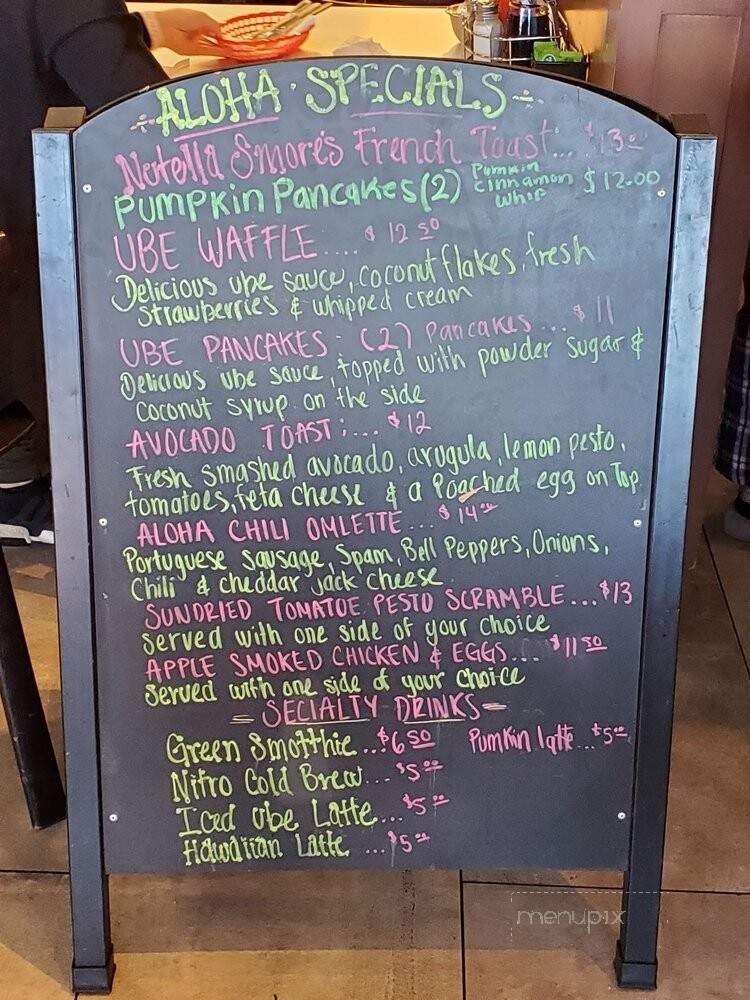 ALOHA SPECIALS
Nutella Smores French Toast... $13.00
Pumpkin Pancakes (2) Pumkin cinnamon whip $12.00
UBE WAFFLE.... $12 50
Delicious ube sauce, coconut flakes, fresh
strawberries & whipped cream
UBE PANCAKES - (2) Pancakes... $11
Delicious ube sauce, topped with powder sugar &
coconut syrup on the side
AVOCADO TOAST:... $12
Fresh smashed avocado, arugula, lemon pesto,
tomatoes, feta cheese & a Poached egg on Top.
ALOHA CHILI OMLETTE... $14.00
Portuguese Sausage, Spam, Bell Peppers, Onions,
Chili & cheddar jack cheese
SUNDRIED TOMATOE PESTO SCRAMBLE...$13
Served with one side of your choice
APPLE SMOKED CHICKEN & EGGS... $11 50
Served with one side of your choice
SECIALTY DRINKS
Green Smotthie...$6 50 Pumkin latte...$5.00
Nitro Cold Brew...$5.00
Iced Ube Latte...$5.00
Hawaiian Latte ...$5.00
menupix